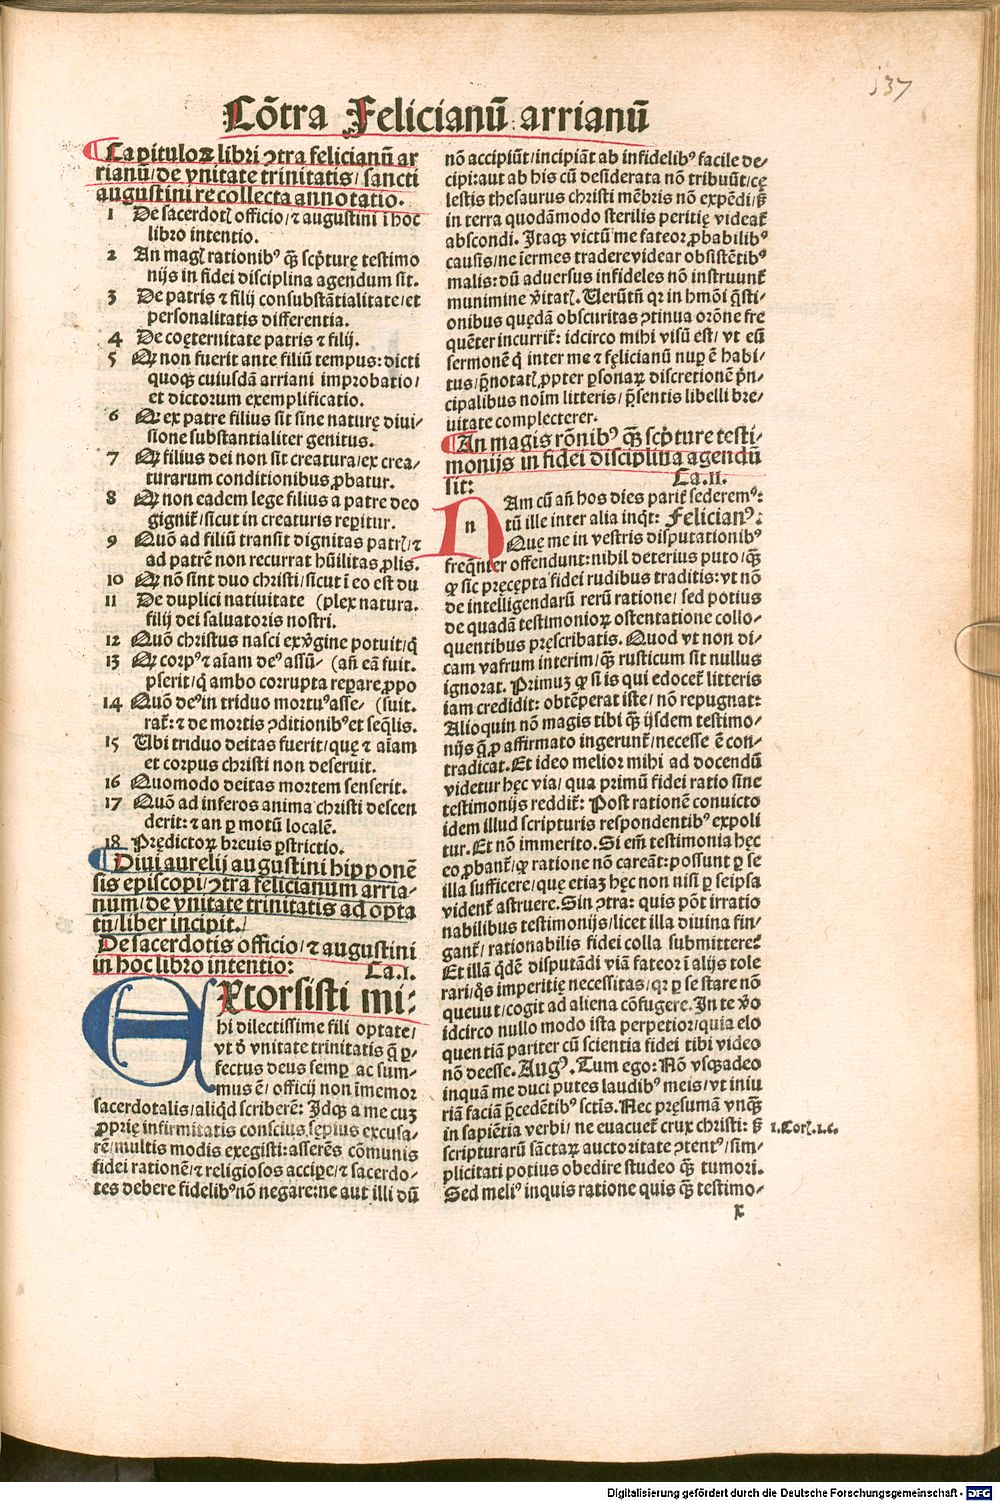 137
Cõtra Felicianũ arrianũ
Capituloꝝ libri ↄtra felicianũ ar
rianũ/de vnitate trinitatis/ sancti
augustini recollecta annotatio.
1 De sacerdotꝭ officio/⁊ augustini ĩ hoc
libro intentio.
2 An magꝭ rationibꝰ q̃ꝫ scp̃turę testimo
nijs in fidei disciplina agendum sit.
3 De patris ⁊ filij consubstãtialitate/et
personalitatis differentia.
4 De coęternitate patris ⁊ filij.
5 Ꝙ non fuerit ante filiũ tempus: dicti
quoqꝫ cuiusdã arriani improbatio/
et dictorum exemplificatio.
6 Ꝙ ex patre filius sit sine naturę diui-
sione substantialiter genitus.
7 Ꝙ filius dei non sit creatura/ex crea-
turarum conditionibus ꝓbatur.
8 Ꝙ non eadem lege filius a patre deo
gignit᷑/sicut in creaturis reperitur.
9 Quõ ad filiũ transit dignitas patrꝭ/⁊
ad patrẽ non recurrat hũilitas ꝓlis.
10 Ꝙ nõ sint duo christi/sicut ĩ eo est du
11 De duplici natiuitate (plex natura.
filij dei saluatoris nostri.
12 Quõ christus nasci ex ṽgine potuit/q̃
13 Ꝙ corpꝰ ⁊ aĩam deꝰ assũ- (añ eã fuit.
pserit/q̃ ambo corrupta repare ꝓpo
14 Quõ deꝰ in triduo mortuꝰ asse- (suit.
rat᷑: ⁊ de mortis ↄditionibꝰ et seq̃lis.
15 Ubi triduo deitas fuerit/quę ⁊ aĩam
et corpus christi non deseruit.
16 Quomodo deitas mortem senserit.
17 Quõ ad inferos anima christi descen
derit: ⁊ an ꝑ motũ localẽ.
18 Prędictoꝝ breuis ꝑstrictio.
Diui aurelij augustini hipponẽ
sis episcopi/ↄtra felicianum arria-
num/de vnitate trinitatis ad opta
tũ/liber incipit./
De sacerdotis officio/⁊ augustini
in hoc libro intentio: Ca.I.
EXtorsisti mi:
hi dilectissime fili optate/
vt ð vnitate trinitatis q̃ ꝑ-
fectus deus semꝑ ac sum-
mus ẽ/ officij non ĩmemor
sacerdotalis/aliq̃d scriberẽ: Idqꝫ a me cuꝫ
ꝓprię infirmitatis conscius sępius excusa-
rẽ/multis modis exegisti: asserẽs cõmunis
fidei rationẽ/⁊ religiosos accipe/⁊ sacerdo-
tes debere fidelibꝰ nõ negare: ne aut illi dũ
nõ accipiũt/incipiãt ab infidelibꝰ facile de-
cipi: aut ab his cũ desiderata nõ tribuũt/cę
lestis thesaurus christi mẽbris nõ expẽdi/sꝫ
in terra quodãmodo sterilis peritię videat᷑
abscondi. Itaqꝫ victũ me fateor ꝓbabilibꝰ
causis/ne ĩermes tradere videar obsistẽtibꝰ
malis: dũ aduersus infideles nõ instruunt᷑
munimine ṽitatꝭ. Uerũtñ qꝛ in hmõi q̃sti-
onibus quędã obscuritas ↄtinua orõne fre
quẽter incurrit᷑: idcirco mihi visũ est/ vt eũ
sermonẽ q̃ inter me ⁊ fęlicianũ nuꝑ ẽ habi-
tus/p̃notatꝭ ꝓpter ꝑsonaꝝ discretionẽ p̃n-
cipalibus noĩm litteris/ p̃sentis libelli bre-
uitate complecterer.
An magis rõnibꝰ q̃ꝫ scp̃ture testi-
monijs in fidei disciplina agendũ
sit: Ca.II.
n
NAm cũ añ hos dies parit᷑ sederemꝰ:
tũ ille inter alia inq̃t: Felicianꝰ:
Quę me in vestris disputationibꝰ
freq̃nter offendunt: nihil deterius puto/q̃ꝫ
ꝙ sic pręcępta fidei rudibus traditis: vt nõ
de intelligendarũ rerũ ratione/ sed potius
de quadã testimonioꝝ ostentatione collo-
quentibus pręscribatis. Quod vt non di-
cam vafrum interim/q̃ꝫ rusticum sit nullus
ignorat. Primuꝫ ꝙ si is qui edocet᷑ litteris
iam credidit: obtẽperat iste/ nõ repugnat:
Alioquin nõ magis tibi q̃ꝫ ijsdem testimo-
nijs q̃ ꝓ affirmato ingerunt᷑/necesse ẽ con-
tradicat. Et ideo melior mihi ad docendũ
videtur hęc via/ qua primũ fidei ratio sine
testimonijs reddit᷑: Post rationẽ conuicto
idem illud scripturis respondentibꝰ expoli
tur. Et nõ immerito. Si em̃ testimonia hęc
eo ꝓbant᷑/ꝙ ratione nõ careãt: possunt ꝑ se
illa sufficere/quę etiaꝫ hęc non nisi ꝑ seipsa
vident᷑ astruere. Sin ↄtra: quis põt irratio
nabilibus testimonijs/licet illa diuina fin-
gant᷑/ rationabilis fidei colla submittere?
Et illã q̃dẽ disputãdi viã fateor ĩ alijs tole
rari/q̃s imperitię necessitas/qꝛ ꝑ se stare nõ
queuut/cogit ad aliena cõfugere. In te ṽo
idcirco nullo modo ista perpetior/quia elo
quentiã pariter cũ scientia fidei tibi video
nõ deesse. Augꝰ. Tum ego: Nõ vsqꝫadeo
inquã me duci putes laudibꝰ meis/vt iniu
riã faciã p̃cedẽtibꝰ sctĩs. Nec pręsumã vnq̃ꝫ
in sapiẽtia verbi/ ne euacuet᷑ crux christi: sꝫ
scripturarũ sãctaꝝ auctoritate ↄtentꝰ/sim-
plicitati potius obedire studeo q̃ꝫ tumori.
Sed meliꝰ inquis ratione quis q̃ꝫ testimo-
1.Corꝭ.1.c.
x
Digitalisierung gefördert durch die Deutsche Forschungsgemeinschaft - DFG